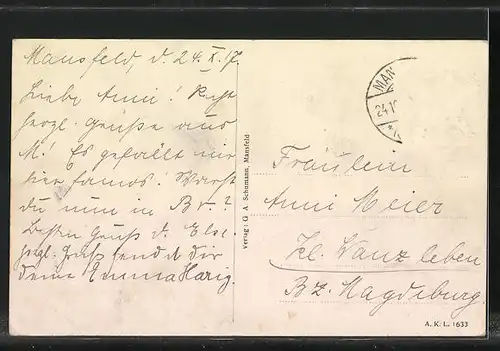 Mansfeld, d. 24.X.17.
Liebe Anni! Recht
herzl. Grüße aus
M! Es gefällt mir
hier famos! Warst
du nun in Br.?
Besten Gruß d. Else.
Herzl. Gruß sendet dir
deine Emma Harig.
Verlag: G. A. Schumann, Mansfeld
MAN
24.1
Fräulein
Anni Meier
Kl. Wanzleben
Bz. Magdeburg.
A. K. L. 1633